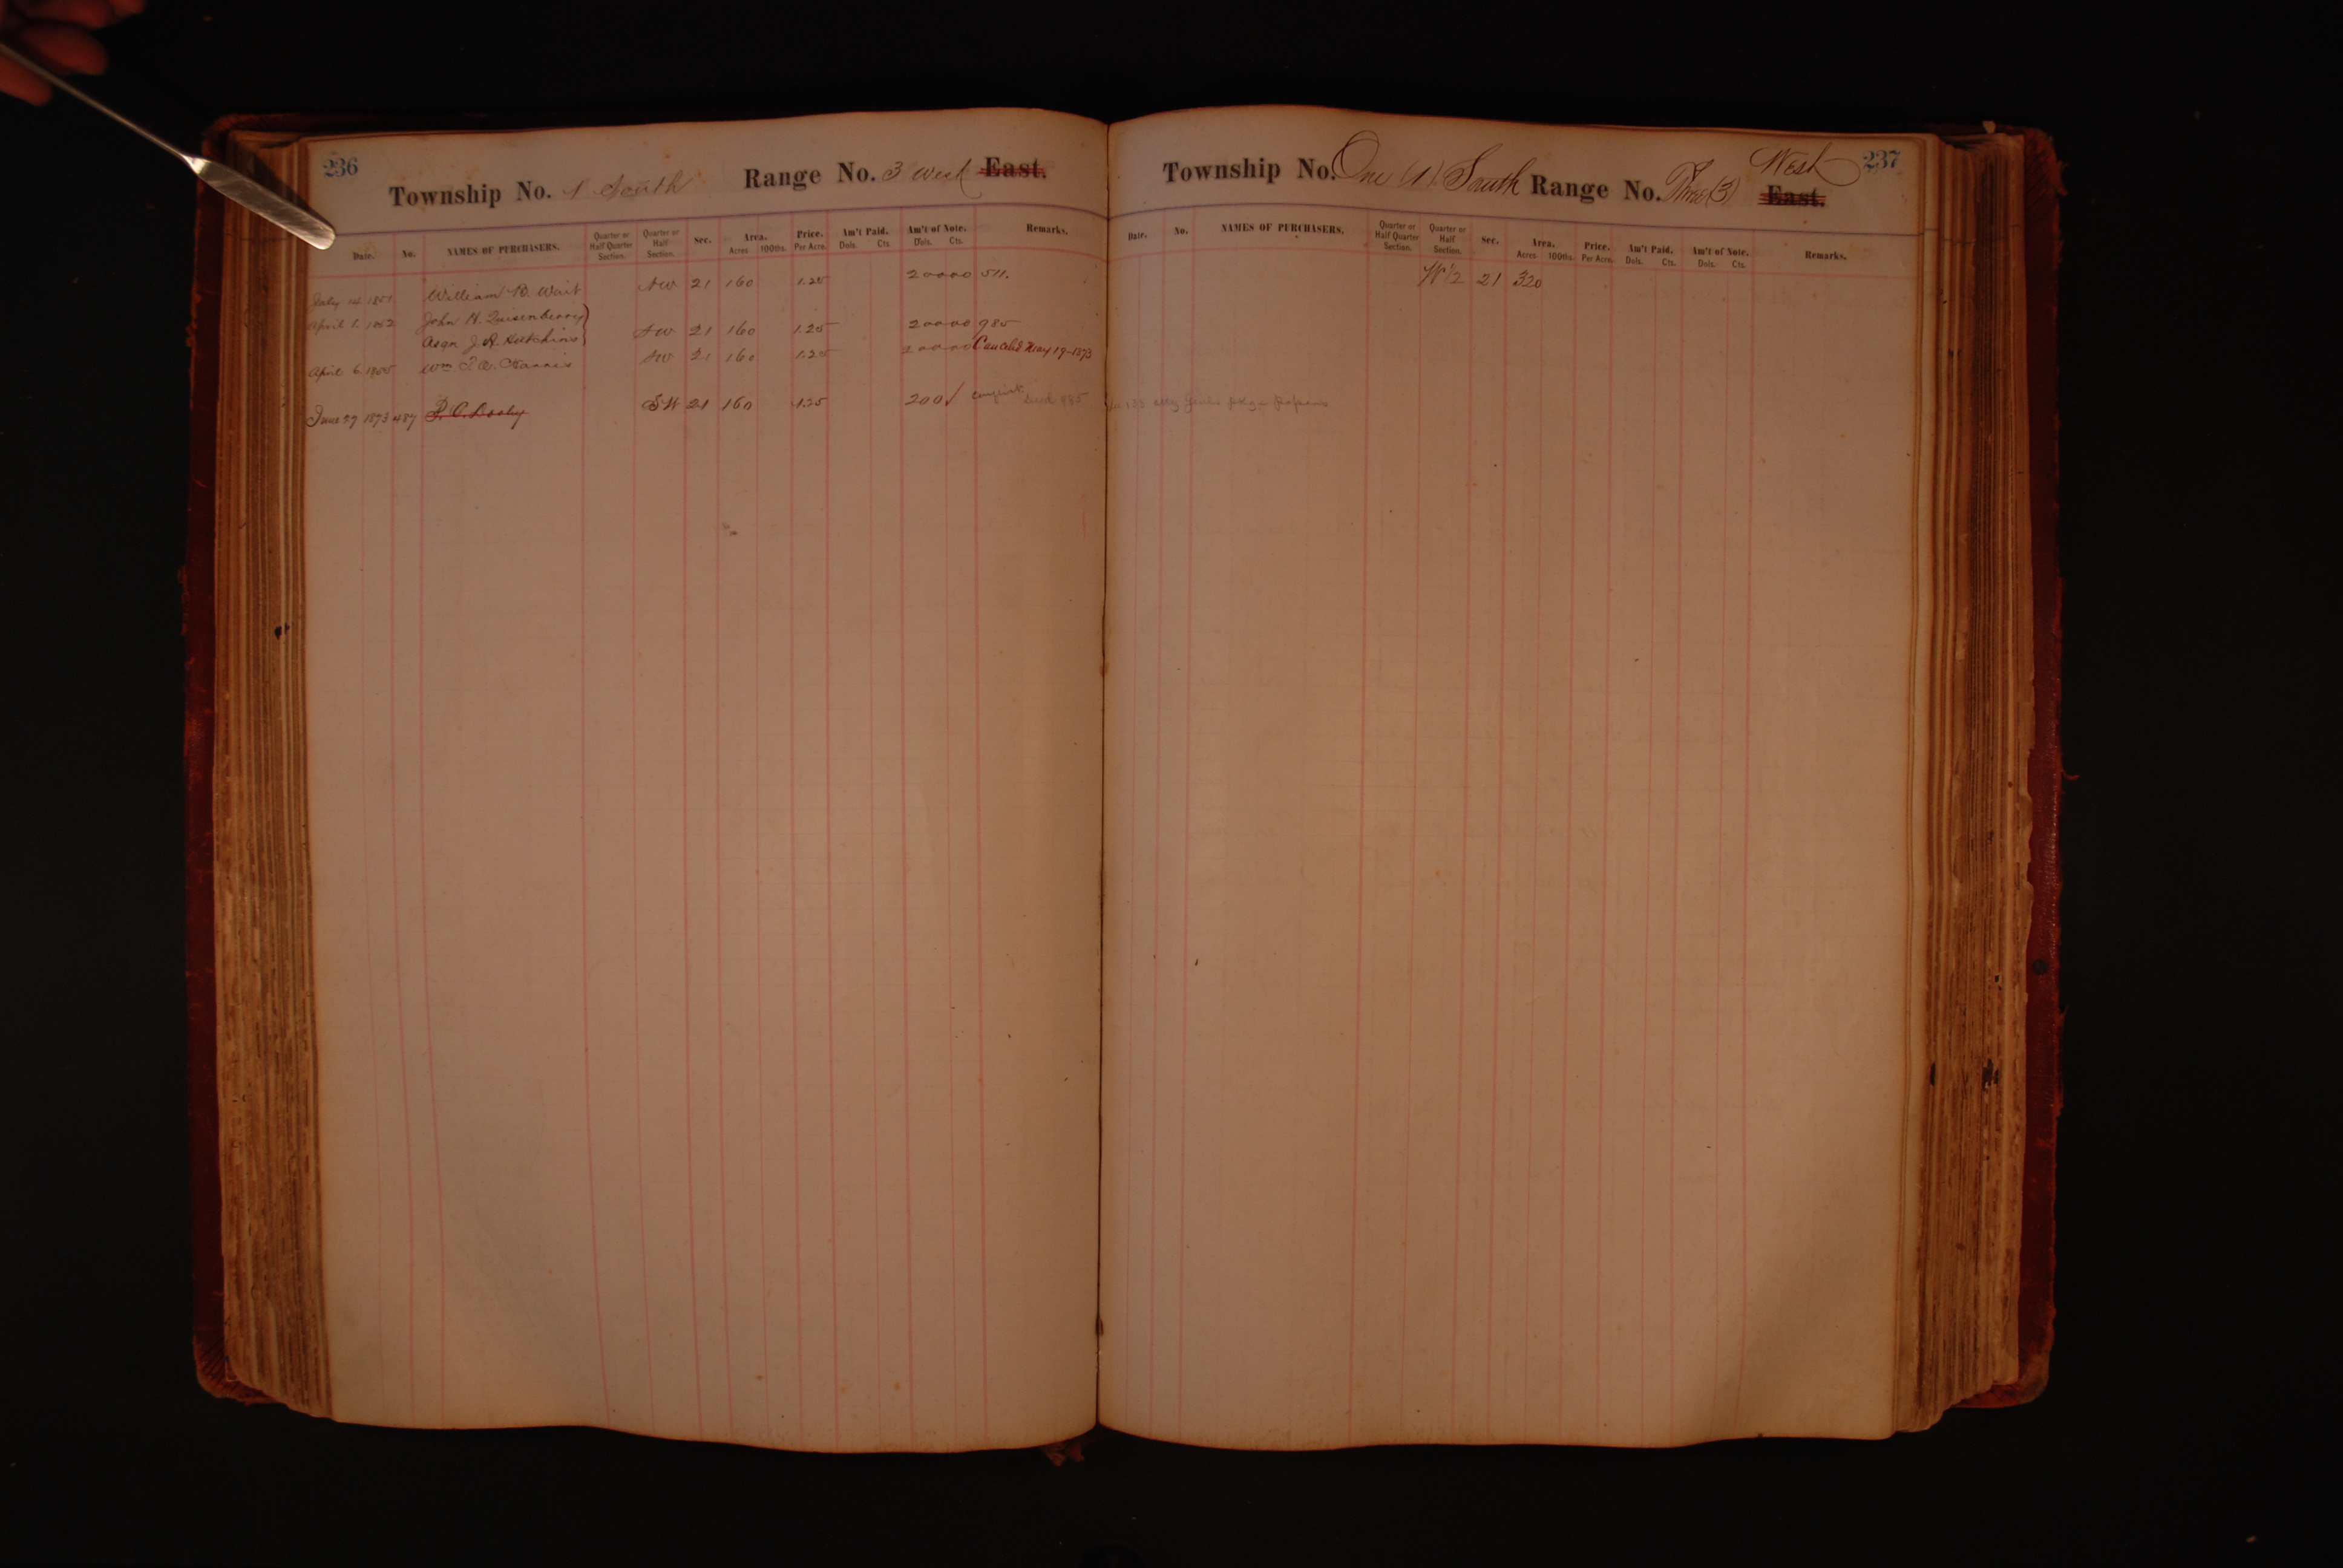 236
Township No. 1 South Range No. 3 West East.
Date. No. NAMES OF PURCHASERS. Quarter or Half Quarter Section. Quarter or Half Section. Sec. Area. Acres 100ths. Price. Per Acre. Am't Paid. Dols. Cts. Am't of Note. Dols. Cts. Remarks.
July 14 1851 William B. Wait NW 21 160 1.25 20000 511.
April 1. 1852 John H. Quisenberry
Asgn J. A. Hutchins SW 21 160 1.25 20000 985
April 6 Wm. Harris SW 21 160 1.25 20000 Canceled May 19-1873
June 27 1873 487 P. C. Dooly SW 21 160 1.25 200 985
237
Township No. One (1) South Range No. Three (3) West East.
Date. No. NAMES OF PURCHASERS. Quarter or Half Quarter Section. Quarter or Half Section. Sec. Area. Acres 100ths. Price. Per Acre. Am't Paid. Dols. Cts. Am't of Note. Dols. Cts. Remarks.
W 1/2 21 320